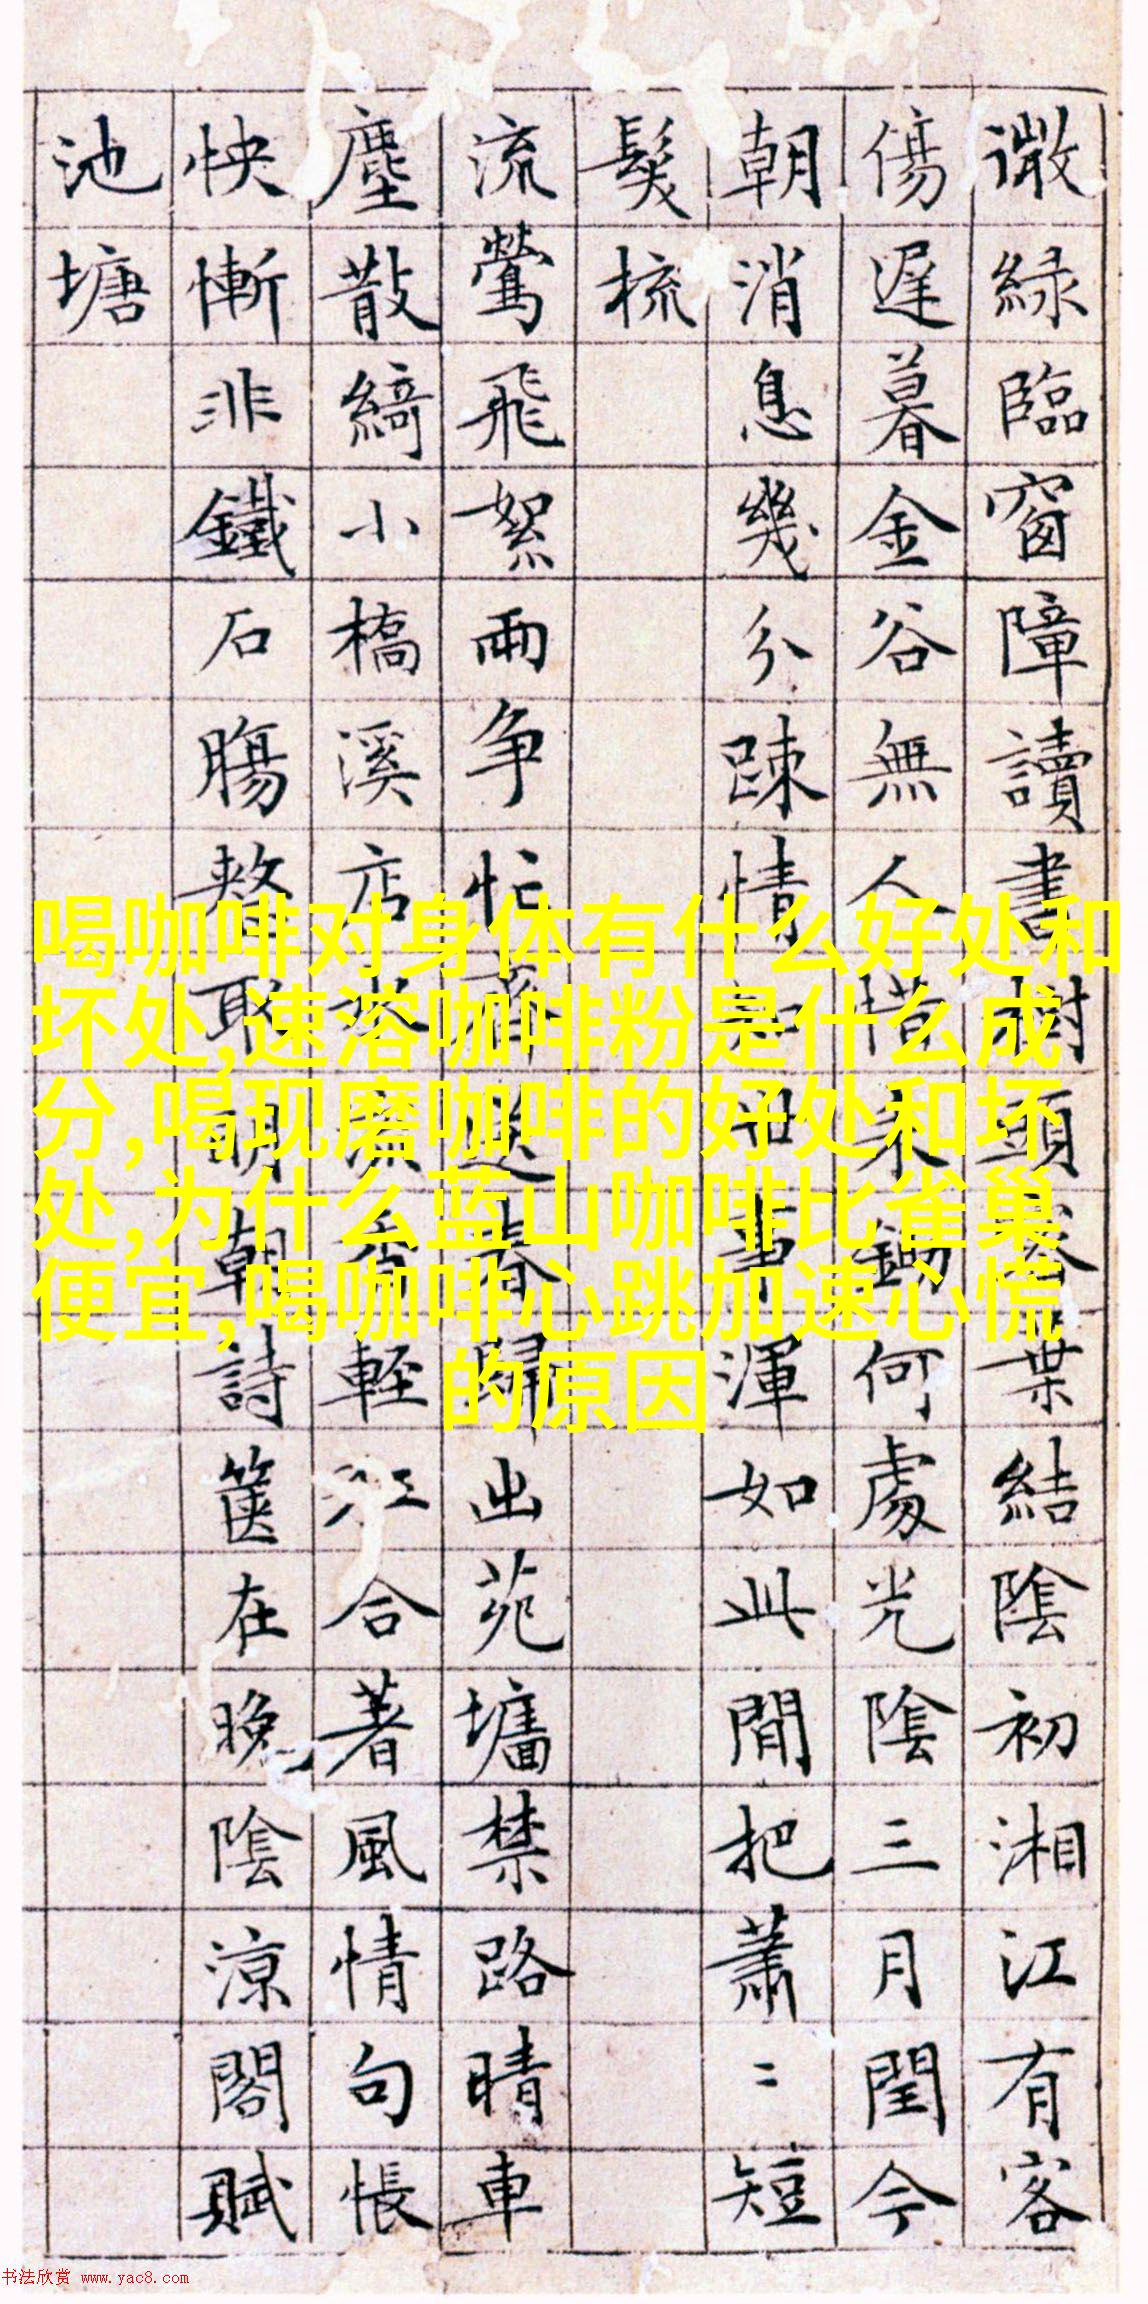 微綠臨窗障讀書樹頭葉結陰初湘江有客
傷遲暮金谷無人惜鋤何處光陰三月閏今
朝消息幾分踈情事渾如此間把蕭〻短
髮梳
流鶯飛絮兩争忙送春歸出苑墻禁路晴車
塵散綺小橋溪店香輕江合著風情句悵
怏慚非鐵石腸取明朝詩篋在晚陰涼閣賦
池塘
喝咖啡对身体有什么好处和
坏处,速溶咖啡粉是什么成
分,喝现磨咖啡的好处和坏
处,为什么蓝山咖啡比雀巢
便宜,喝咖啡心跳加速心慌
的原因
书法欣赏 www.yac8.com